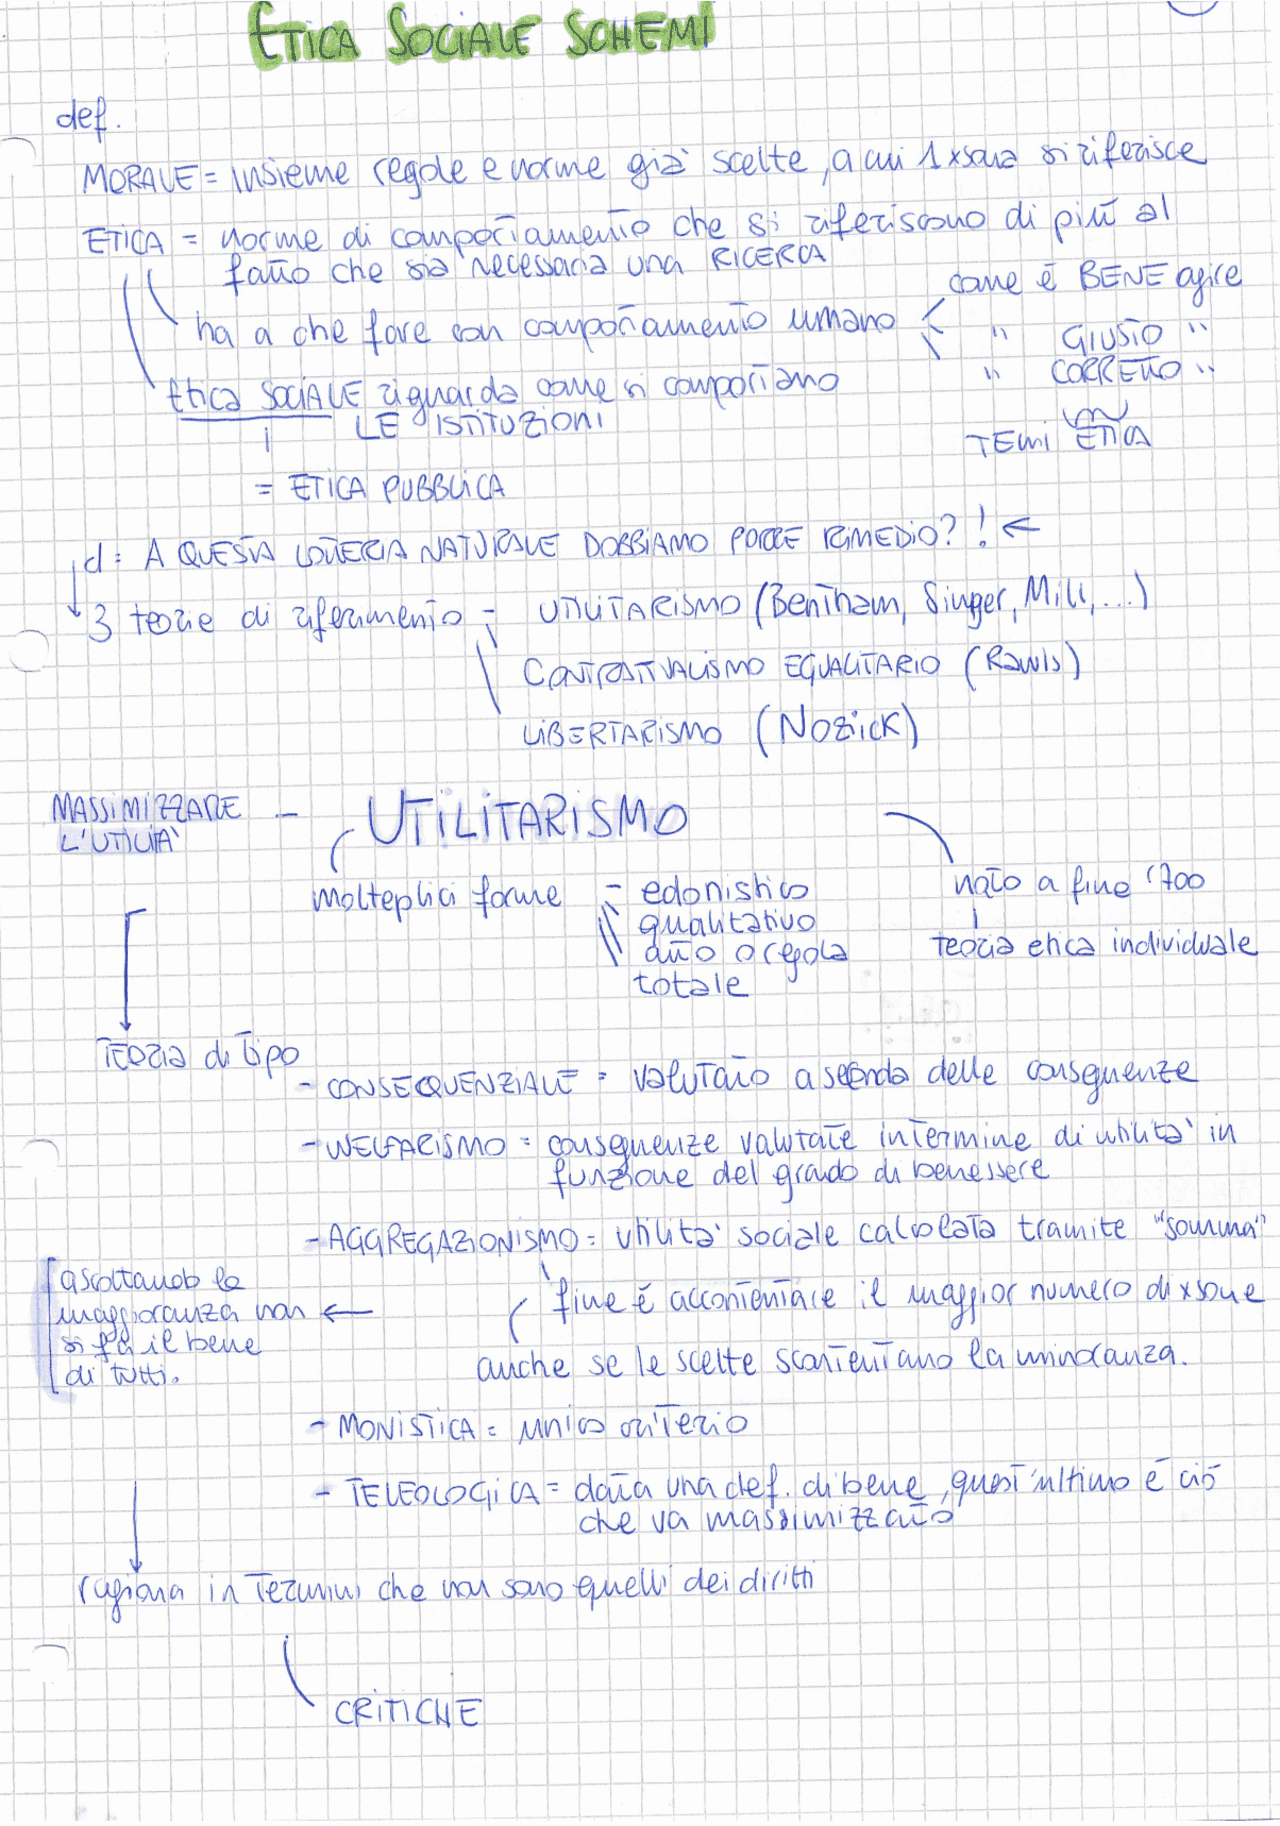 ETICA SOCIALE SCHEMI
def.
MORALE = insieme regole e norme già scelte, a cui 1 xsona si riferisce
ETICA = norme di comportamento che si riferiscono di più al
fatto che sia necessaria una RICERCA
come è BENE agire
ha a che fare con comportamento umano
" GIUSTO "
" CORRETTO "
Etica SOCIALE riguarda come si comportano
LE ISTITUZIONI
TEMI ETICA
= ETICA PUBBLICA
d: A QUESTA LOTTERIA NATURALE DOBBIAMO PORRE RIMEDIO?! ←
3 teorie di riferimento - UTILITARISMO (Bentham, Singer, Mill, ...)
CONTRATTUALISMO EGUALITARIO (Rawls)
LIBERTARISMO (Nozick)
MASSIMIZZARE - UTILITARISMO
L'UTILITÀ
molteplici forme - edonistico
qualitativo
atto o regola
totale
nato a fine '700
teoria etica individuale
Teoria di tipo
- CONSEQUENZIALE = valutato a seconda delle conseguenze
- WELFARISMO = conseguenze valutate in termine di utilità in
funzione del grado di benessere
- AGGREGAZIONISMO = utilità sociale calcolata tramite "somma"
fine è accontentare il maggior numero di xsone
anche se le scelte scontentano la minoranza.
ascoltando la
maggioranza non ←
si fa il bene
di tutti.
- MONISTICA = unico criterio
- TELEOLOGICA = data una def. di bene, quest'ultimo è ciò
che va massimizzato
ragiona in termini che non sono quelli dei diritti
CRITICHE